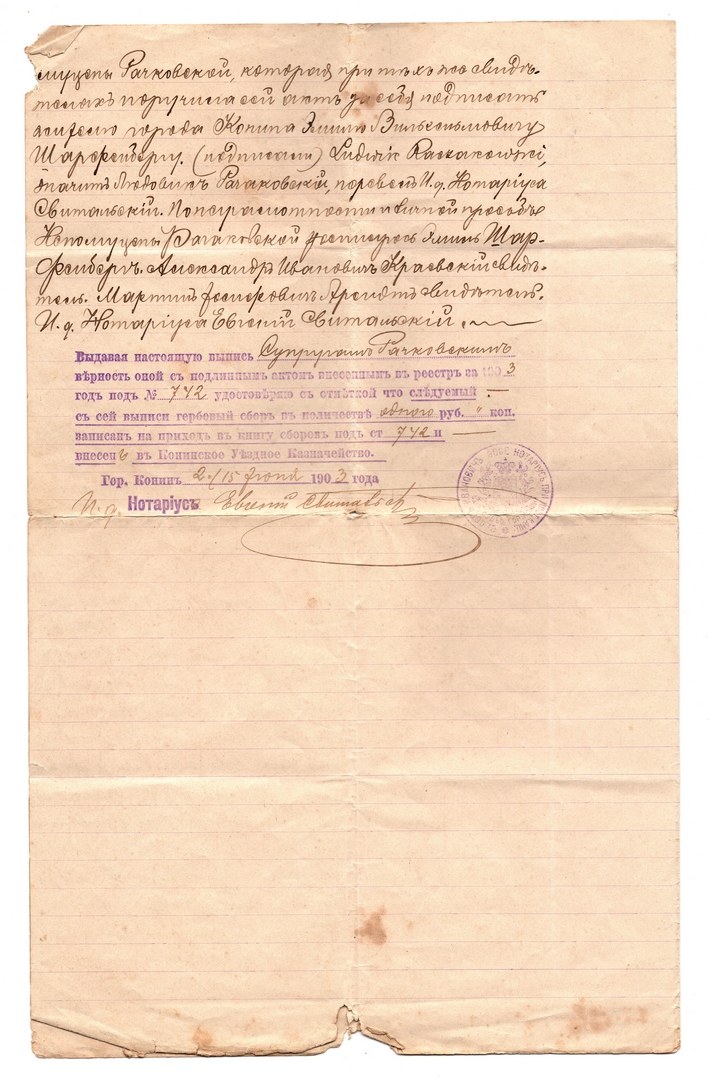 муцены Рачковской, которая при тѣхъ же свидѣ-
теляхъ поручила сей актъ за себя подписать
жителю города Конина Эмилю Вильгельмовичу
Шарфенбергу. (подписали) Ludwik Raczkowski,
значитъ Людовикъ Рачковскій, перевелъ И. д. Нотаріуса
Свитальскій. По неграмотности и личной просьбѣ
Непомуцены Рачковской росписуюсь Эмиль Шар-
фенбергъ. Александръ Ивановичъ Краевскій свидѣ-
тель. Мартинъ Іосифовичъ Арендтъ свидѣтель.
И. д. Нотаріуса Евгеній Свитальскій.
Выдавая настоящую выпись Супругамъ Рачковскимъ
вѣрность оной съ подлиннымъ актомъ внесеннымъ въ реестръ за 1903
годъ подъ № 742 удостовѣряю съ отмѣткой что слѣдуемый
съ сей выписи гербовый сборъ въ количествѣ одного руб. " коп.
записанъ на приходъ въ книгу сборовъ подъ ст 742 и
внесенъ въ Конинское Уѣздное Казначейство.
Гор. Конинъ 2/15 Іюня 1903 года
И. д. Нотаріусъ Евгеній Свитальскій